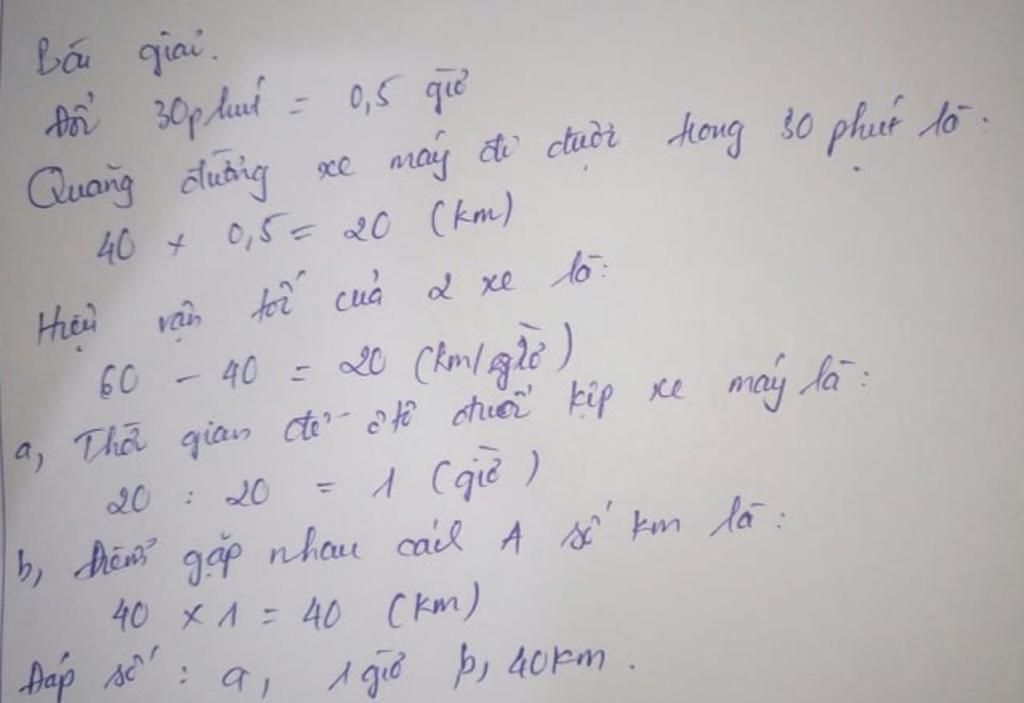 Bài giải.
Đổi 30phút = 0,5 giờ
Quãng đường xe máy đi được trong 30 phút là:
40 x 0,5 = 20 (km)
Hiệu vận tốc của 2 xe là:
60 - 40 = 20 (km/giờ)
a, Thời gian để ôtô đuổi kịp xe máy là:
20 : 20 = 1 (giờ)
b, Điểm gặp nhau cách A số km là:
40 x 1 = 40 (km)
Đáp số : a, 1 giờ b, 40km.